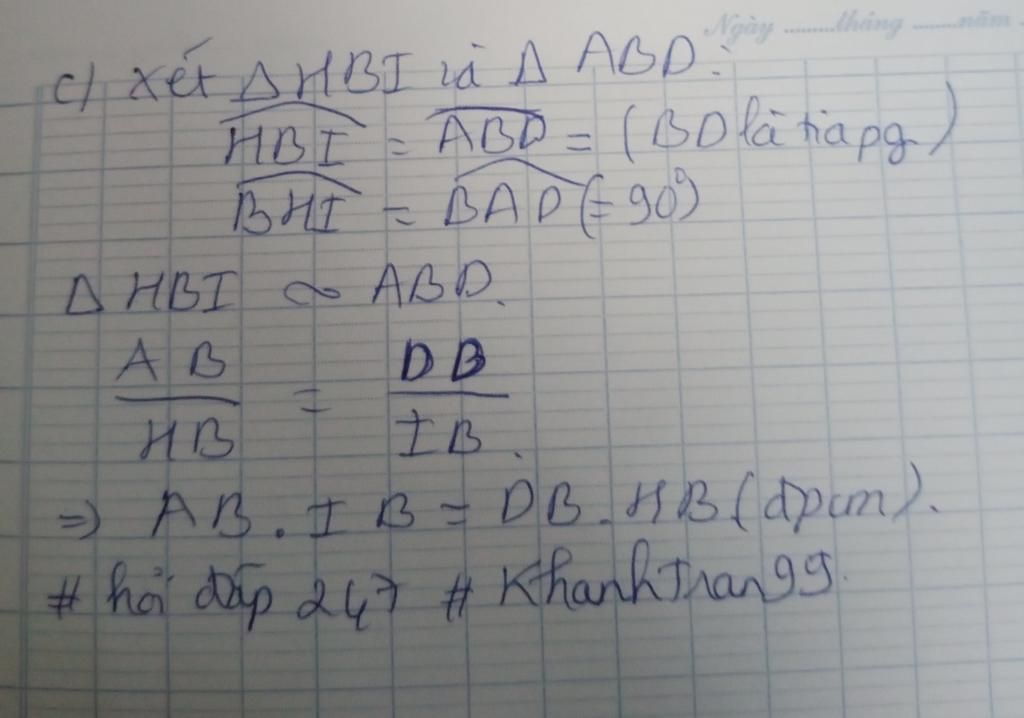 Ngày .........tháng ........năm
c) Xét Δ HBI và Δ ABD:
HBI = ABD = (BD là tia pg)
BHI = BAD (= 90°)
Δ HBI ∽ ABD.
AB/HB = DB/IB.
=> AB. IB = DB. HB (đpcm).
# hỏi đáp 247 # KhanhTran99.